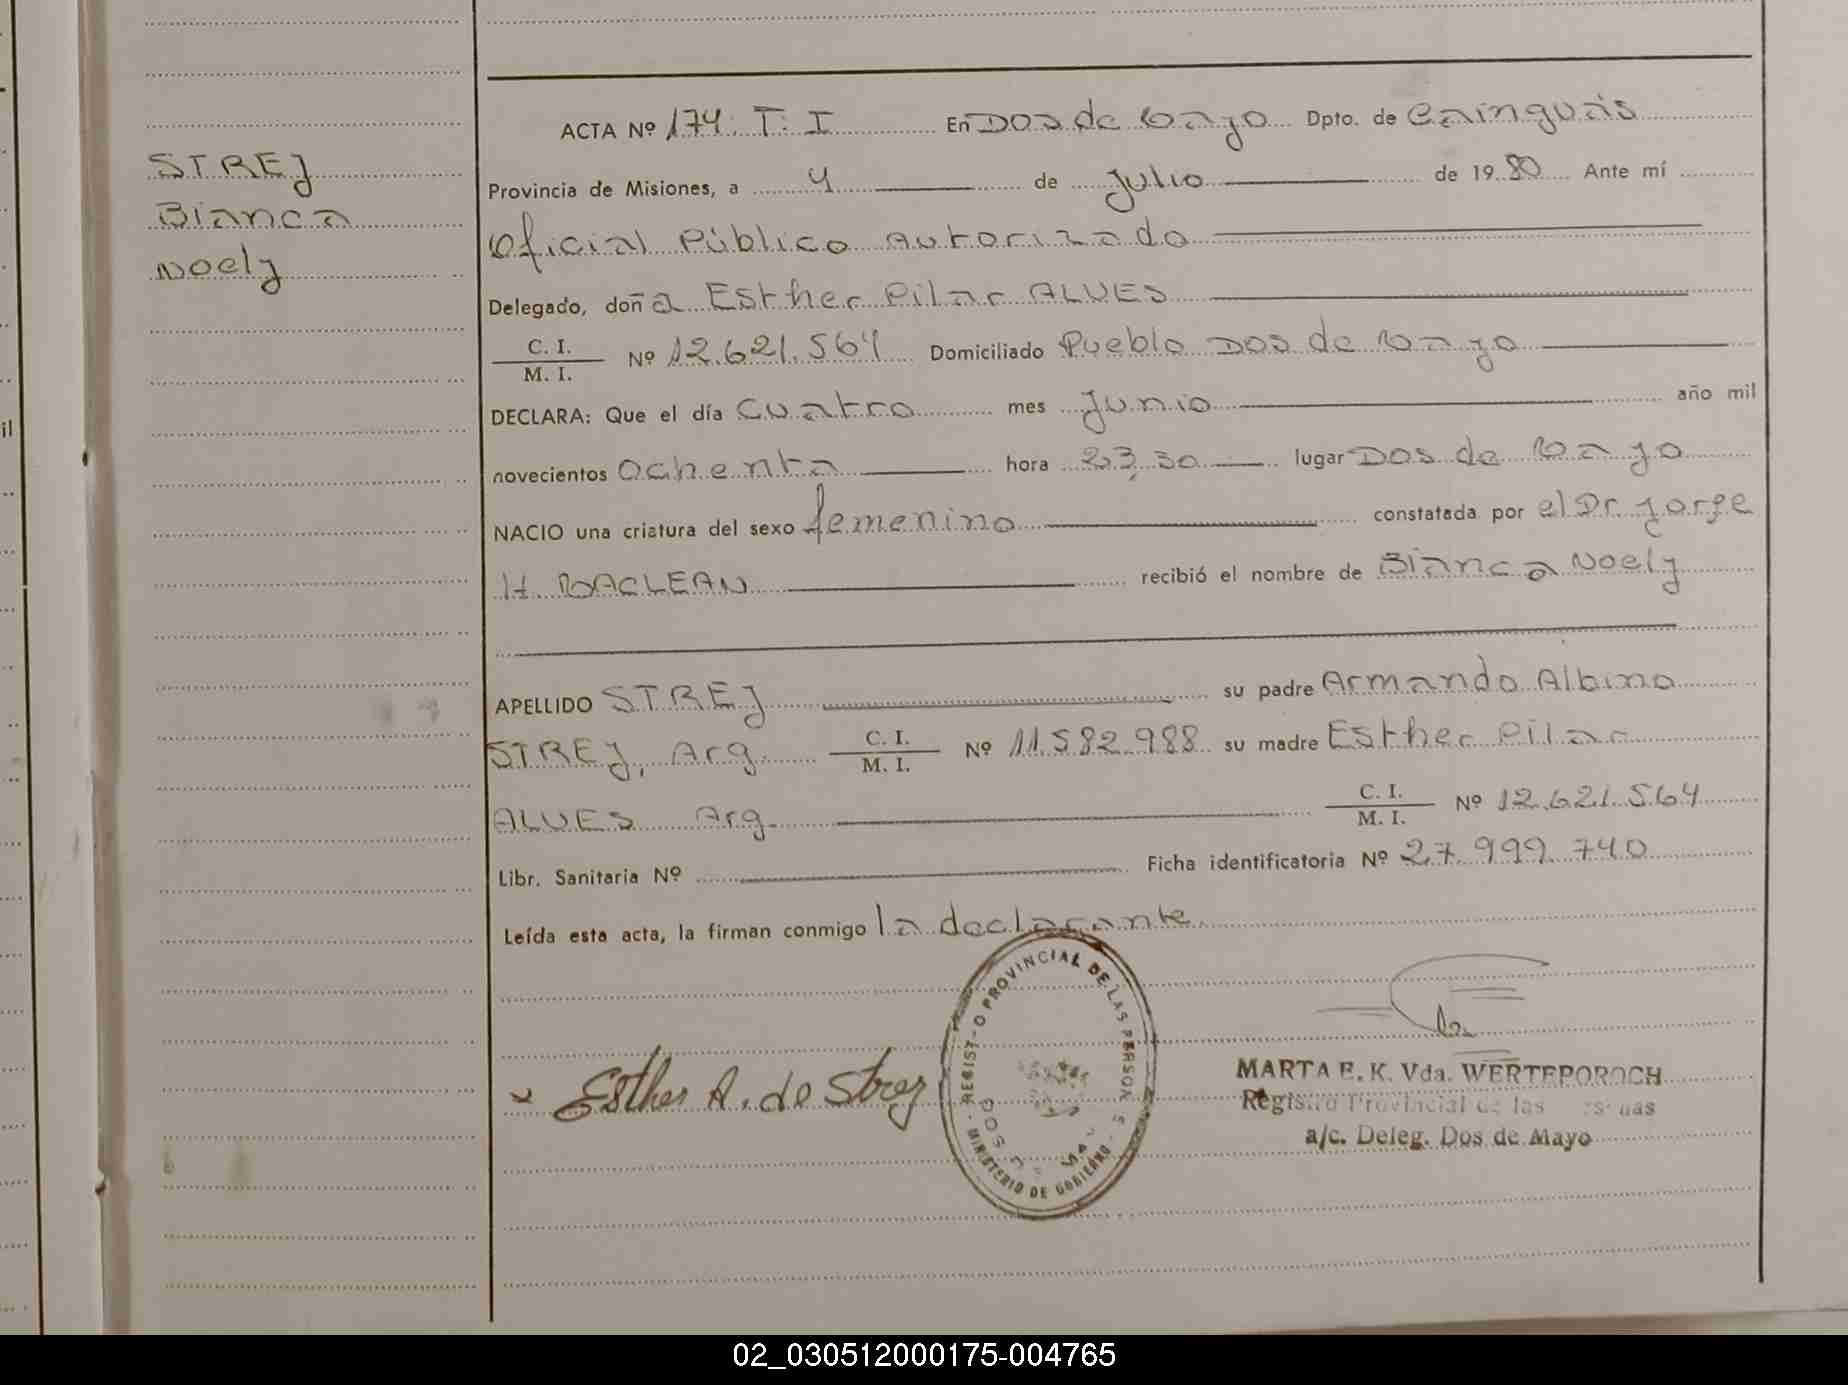 STREJ
Bianca
Noely
ACTA Nº 174. T: I En Dos de Mayo Dpto. de Cainguás
Provincia de Misiones, a 4 de Julio de 1980 Ante mí
Oficial Público Autorizado
Delegado, doña Esther Pilar ALVES
C. I.
M. I. Nº 12.621.564 Domiciliado Pueblo Dos de Mayo
DECLARA: Que el día Cuatro mes Junio año mil
novecientos Ochenta hora 23,30 lugar Dos de Mayo
NACIO una criatura del sexo femenino constatada por el Dr. Jorge
H. MACLEAN recibió el nombre de Bianca Noely
APELLIDO STREJ su padre Armando Albino
STREJ, Arg. C. I.
M. I. Nº 11.582.988 su madre Esther Pilar
ALVES Arg. C. I.
M. I. Nº 12.621.564
Libr. Sanitaria Nº Ficha identificatoria Nº 27.999.740
Leída esta acta, la firman conmigo la declarante.
Esther A. de Strej
REGIST-O PROVINCIAL DE LAS PERSON S
MINISTERIO DE GOBIERNO
DOS
MARTA E. K. Vda. WERTEPOROCH
Registro Provincial de las
a/c. Deleg. Dos de Mayo
il
02_030512000175-004765